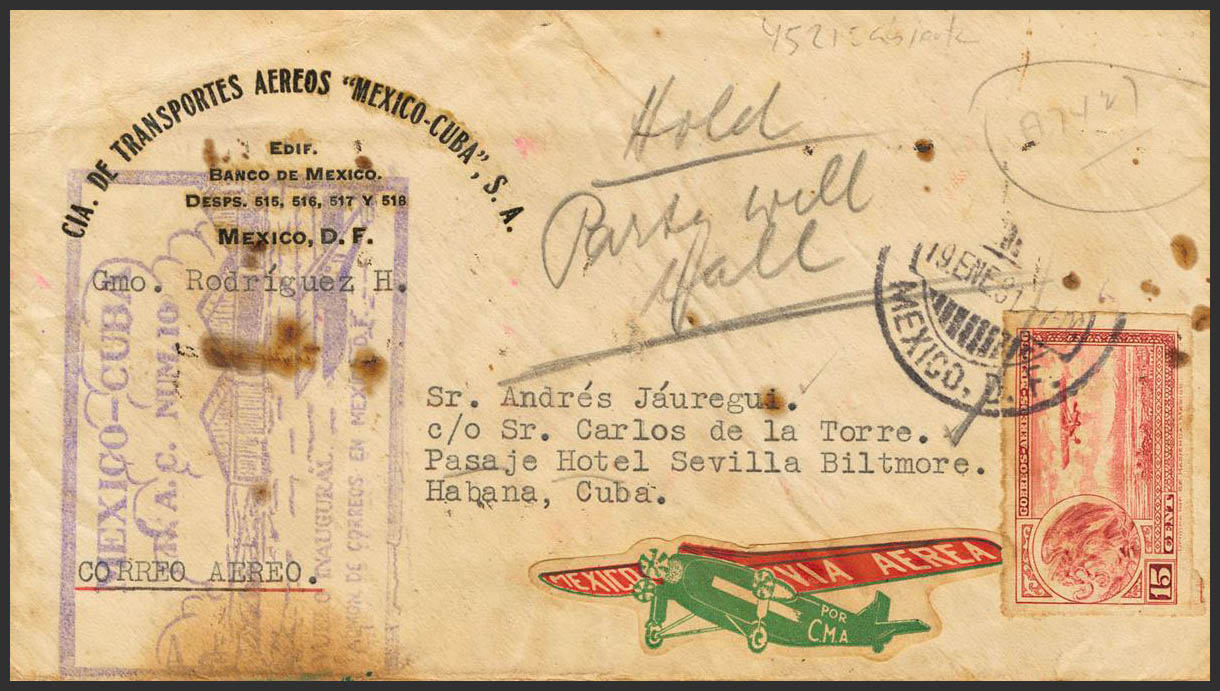 CIA. DE TRANSPORTES AEREOS "MEXICO-CUBA", S. A.
EDIF.
BANCO DE MEXICO.
DESPS. 515, 516, 517 Y 518
MEXICO, D. F.
Gmo. Rodríguez H.
Hold
Party will
Call
19 ENE.31
MEXICO, D. F.
Sr. Andrés Jáuregui.
c/o Sr. Carlos de la Torre.
Pasaje Hotel Sevilla Biltmore.
Habana, Cuba.
MEXICO-CUBA
F.A.C. NUM 10
INAUGURAL.
DE CORREOS EN MEXICO D.F.
CORREO AEREO.
MEXICO VIA AEREA
POR
C.M.A
CORREOS-AEREOS-MEXICO
15 CENT